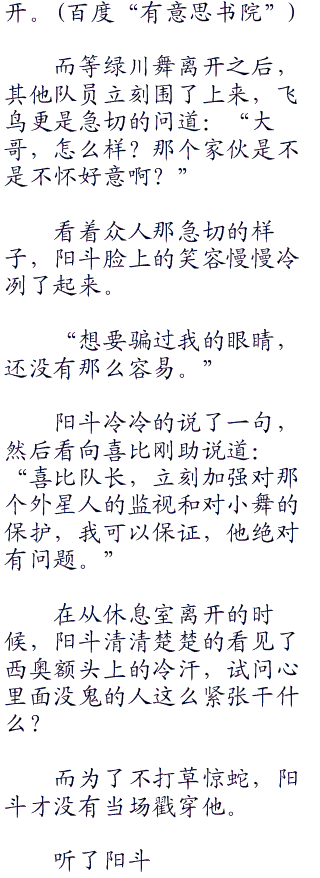 开。(百度“有意思书院”)
而等绿川舞离开之后，
其他队员立刻围了上来，飞
鸟更是急切的问道：“大
哥，怎么样？那个家伙是不
是不怀好意啊？”
看着众人那急切的样
子，阳斗脸上的笑容慢慢冷
冽了起来。
“想要骗过我的眼睛，
还没有那么容易。”
阳斗冷冷的说了一句，
然后看向喜比刚助说道：
“喜比队长，立刻加强对那
个外星人的监视和对小舞的
保护，我可以保证，他绝对
有问题。”
在从休息室离开的时
候，阳斗清清楚楚的看见了
西奥额头上的冷汗，试问心
里面没鬼的人这么紧张干什
么？
而为了不打草惊蛇，阳
斗才没有当场戳穿他。
听了阳斗